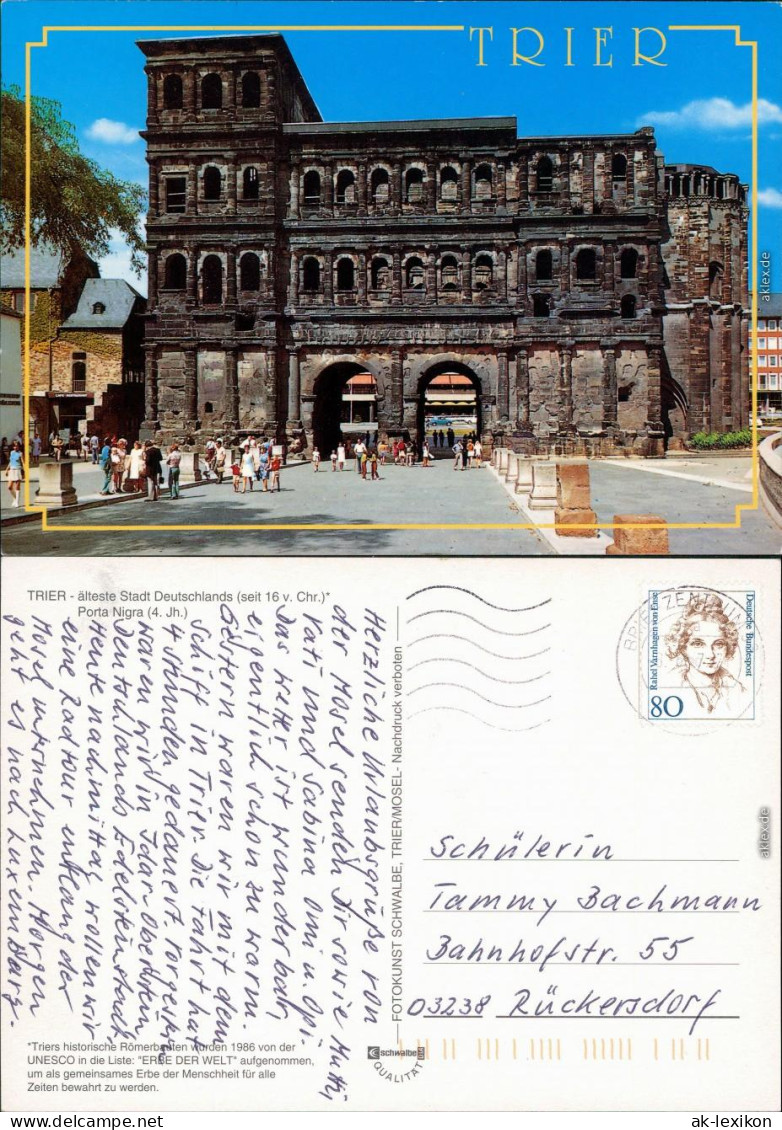 TRIER
TRIER - älteste Stadt Deutschlands (seit 16 v. Chr.)*
Porta Nigra (4. Jh.)
Herzliche Urlaubsgrüße von
der Mosel senden Dir sowie Mutti,
Kati und Sabina Omi u. Opi.
Das Wetter ist wunderbar,
eigentlich schon zu warm.
Gestern waren wir mit dem
Schiff in Trier. Die Fahrt hat
4 Stunden gedauert. Vorgestern
waren wir in Idar-Oberstein,
Deutschlands Edelsteinstadt.
Heute nachmittag wollen wir
eine Radtour entlang der
Mosel unternehmen. Morgen
geht es nach Luxemburg.
*Triers historische Römerbauten wurden 1986 von der
UNESCO in die Liste: "ERBE DER WELT" aufgenommen,
um als gemeinsames Erbe der Menschheit für alle
Zeiten bewahrt zu werden.
FOTOKUNST SCHWALBE, TRIER/MOSEL - Nachdruck verboten
schwalbe
QUALITÄT
BRIEFZENTRUM
Deutsche Bundespost
Rahel Varnhagen von Ense
80
Schülerin
Tammy Bachmann
Bahnhofstr. 55
03238 Rückersdorf
aklex.de
aklex.de
www.ak-ansichtskarten.de
ak-lexikon